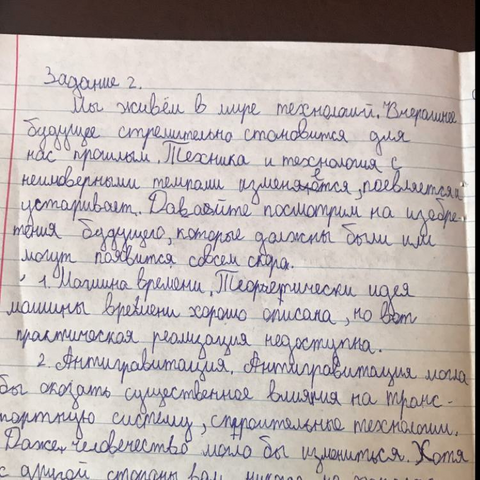 Задание 2.
Мы живём в мире технологий. Вчерашнее
будущее стремительно становится для
нас прошлым. Техника и технология с
неимоверными темпами изменяется, поевляется и
устаривает. Давайте посмотрим на изобре-
тения будущего, которые должны были или
могут появится совсем скора.
1. Машина времени. Теоретически идея
машины времени хорошо описана, но вот
практическая реализация недоступна.
2. Антигравитация. Антигравитация могла
бы оказать существенное влияния на транс-
портную систему, строительные технологии.
Даже человечество могло бы измениться. Хотя
с другой стороны вам